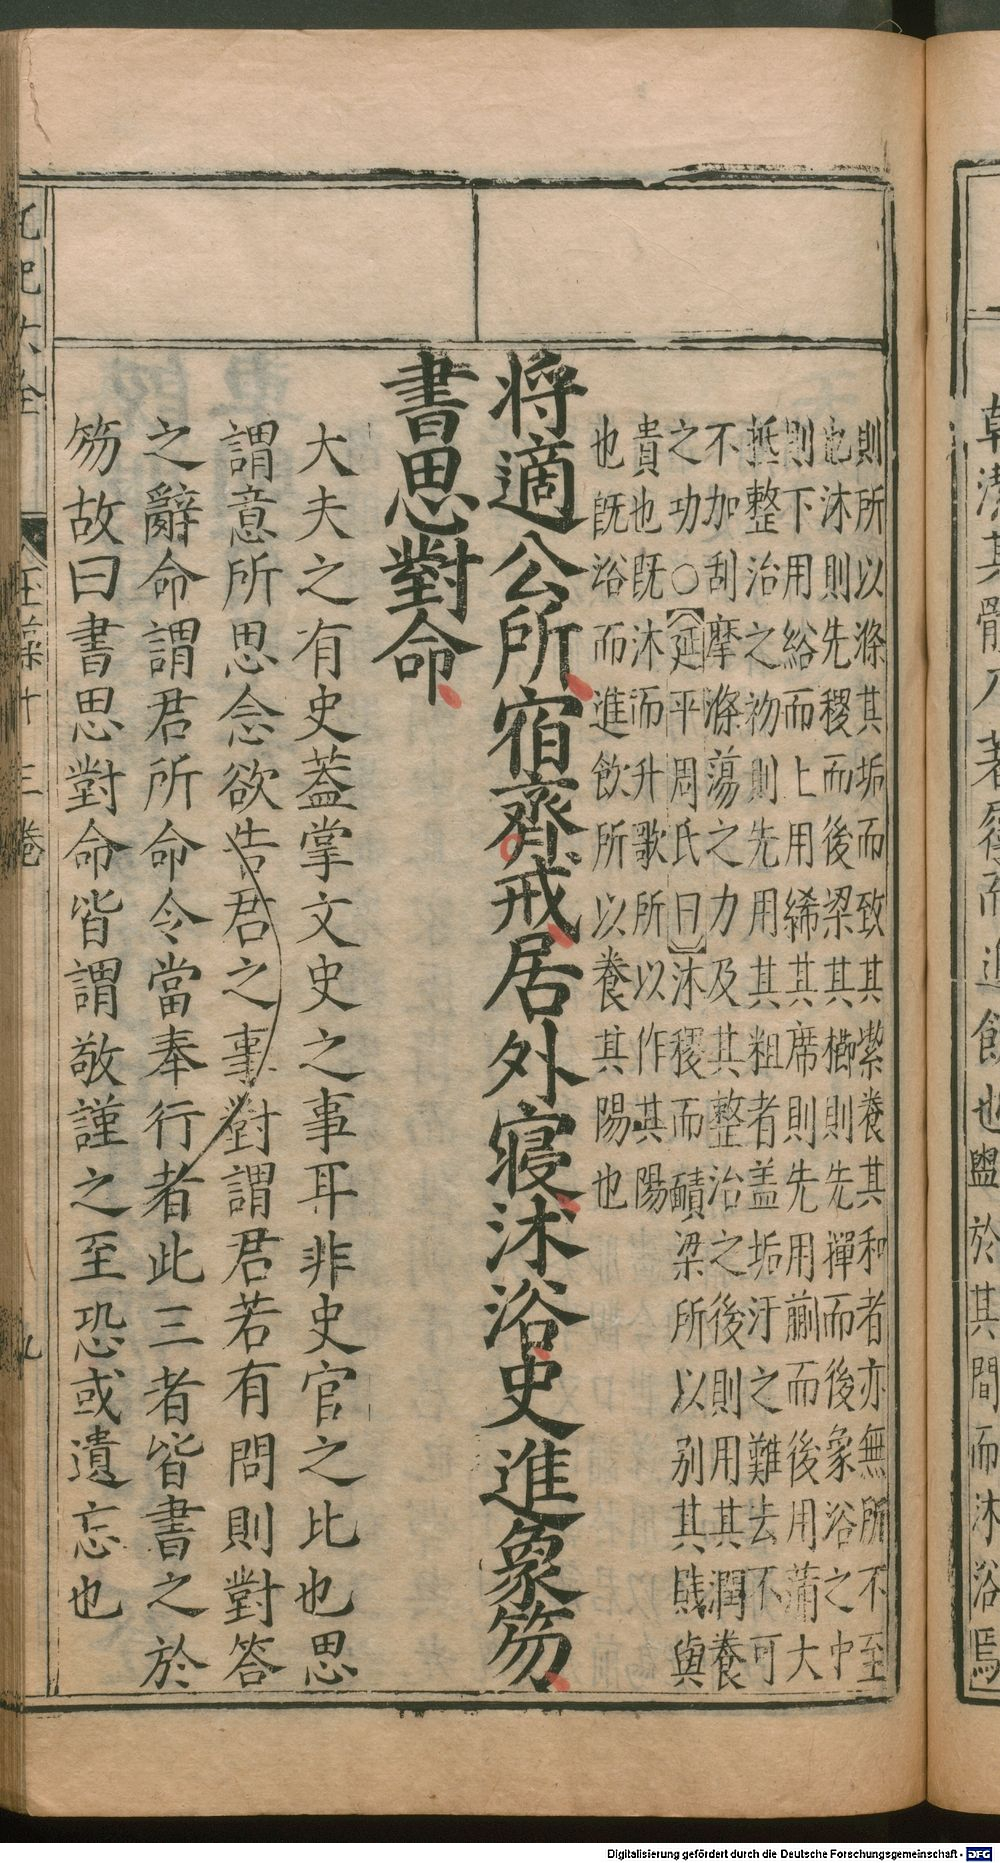 則所以滌其垢而致其㓗養其和者亦無所不至
也沐則先稷而後梁其櫛則先樿而後象浴之巾
則下用綌而上用絺其席則先用蒯而後用蒲大
抵整治之初則先用其粗者盖垢汙之難去不可
不加刮摩滌蕩之力及其整治之後則用其潤養
之功○【延平周氏曰】沐稷而靧梁所以别其賤與
貴也旣沐而升歌所以作其陽
也旣浴而進飲所以養其陽也
將適公所宿齊戒居外寢沐浴史進象笏
書思對命
大夫之有史葢掌文史之事耳非史官之比也思
謂意所思念欲告君之事對謂君若有問則對答
之辭命謂君所命令當奉行者此三者皆書之於
笏故曰書思對命皆謂敬謹之至恐或遺忘也
玉藻十三卷
九
於其間而沐浴焉
Digitalisierung gefördert durch die Deutsche Forschungsgemeinschaft - DFG